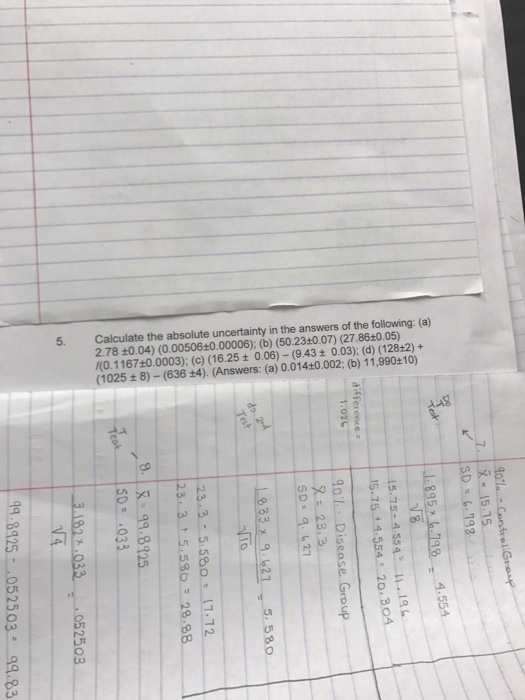 5. Calculate the absolute uncertainty in the answers of the following: (a)
2.78 ±0.04) (0.00506±0.00006); (b) (50.23±0.07) (27.86±0.05)
/(0.1167±0.0003); (c) (16.25 ± 0.06) – (9.43 ± 0.03); (d) (128±2) +
(1025 ± 8) – (636 ±4). (Answers: (a) 0.014±0.002; (b) 11,990±10)
90% - Control Group
7. x̄ = 15.75
SD = 6.798
Do
Test
1.895 x 6.798 = 4.554
√8
15.75 - 4.554 = 11.196
15.75 + 4.554 = 20.304
difference =
1.026
90% - Disease Group
x̄ = 23.3
SD = 9.627
do 2nd
Test
1.833 x 9.627 = 5.580
√10
23.3 - 5.580 = 17.72
23.3 + 5.580 = 28.88
8. x̄ = 99.8925
SD = .033
T
Test
3.182 x .033 = .052503
√4
99.8925 - .052503 = 99.83